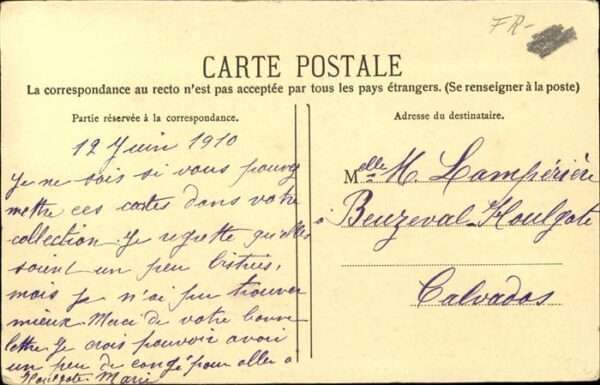 FR-
CARTE POSTALE
La correspondance au recto n'est pas acceptée par tous les pays étrangers. (Se renseigner à la poste)
Partie réservée à la correspondance.
Adresse du destinataire.
12 Juin 1910
Je ne sais si vous pouvez
mettre ces cartes dans votre
collection. Je regrette qu'elles
soient un peu
mais je n'ai pu trouver
mieux. Merci de votre bonne
lettre. Je crois pouvoir avoir
un peu de congé pour aller à
Houlgate. Marie
Melle M. Lampérière
à Beuzeval-Houlgate
Calvados